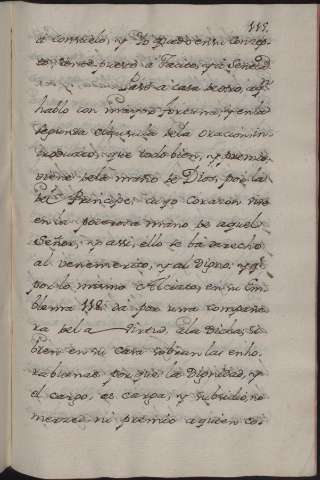 115.
de consuelo, y
a Tacito, y a Seneca
Passó a casa de otro, aqn.
hablo con mayor fortuna, y en la
segunda clausula de la oracion, in
troduxo, que todo bien, y premio,
viene de la mano de Dios, por la
del Principe; cuyo Corazon vive
en la poderosa mano de aquel
Señor; y assi, ello se da derecho
al venemerito, y al Digno; y q.
por lo mismo Alciato, en su Em
blema 118. da por una compañe
ra de la Virtud, a la Dicha; si
bien en su casa sobran las enho
rabuenas porque la Dignidad, y
el cargo, es carga, y subsidio, no
merced ni premio a quien co